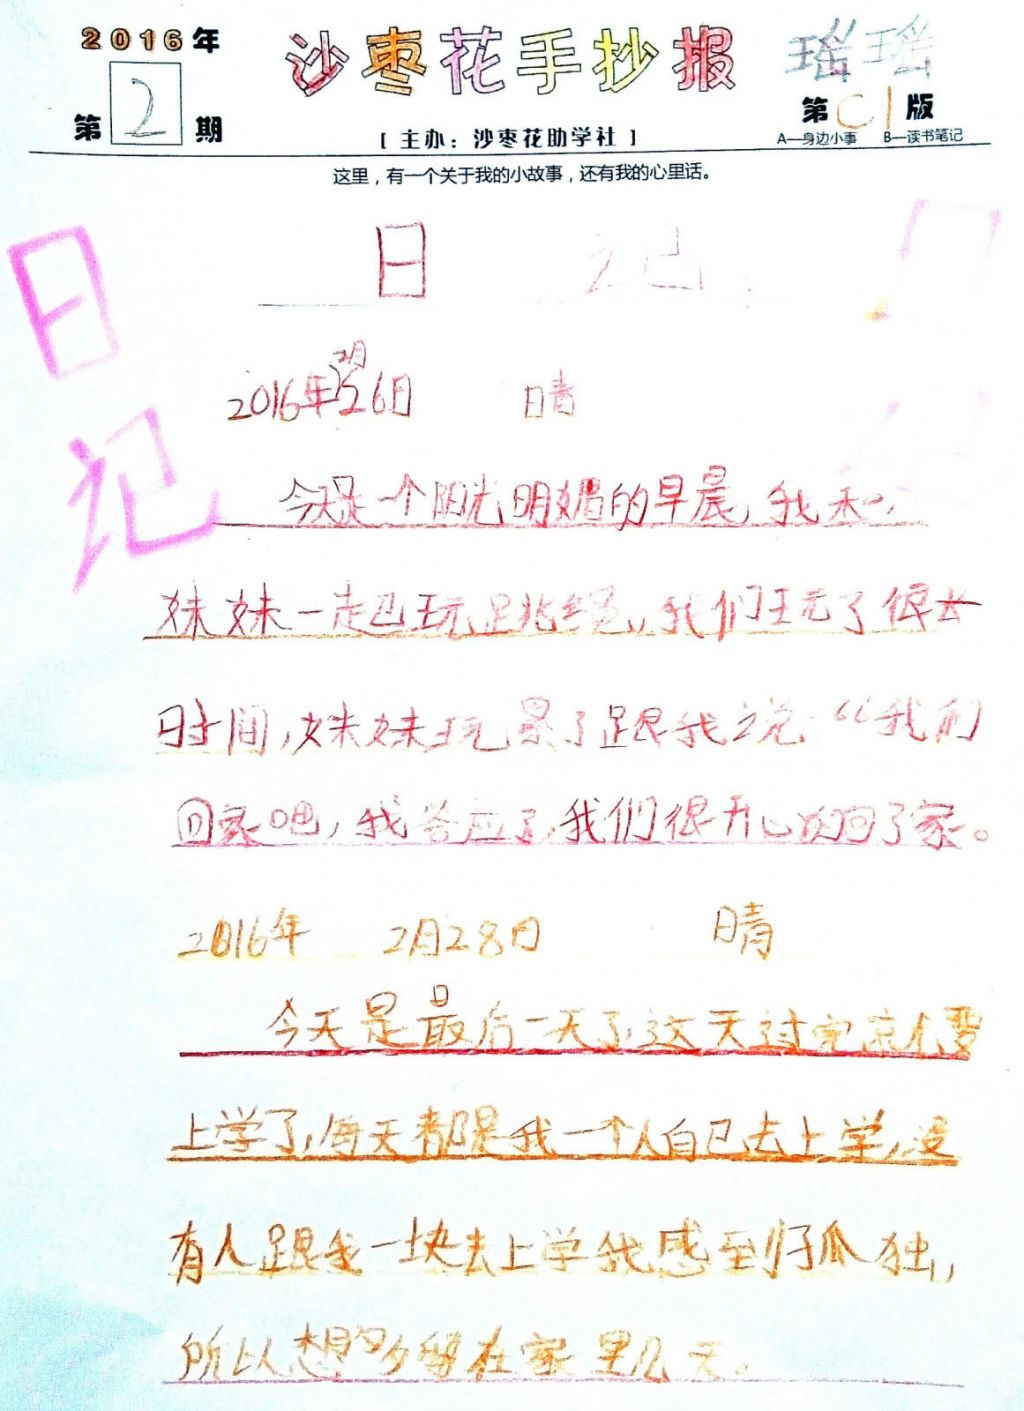 2016年
沙枣花手抄报
瑶瑶
第2期
第C1版
[ 主办：沙枣花助学社 ]
A—身边小事 B—读书笔记
这里，有一个关于我的小故事，还有我的心里话。
日记
日记
2016年2月26日 晴
今天是一个阳光明媚的早晨，我和
妹妹一起玩跳绳，我们玩了很长
时间，妹妹玩累了跟我说：“我们
回家吧，我答应了，我们很开心的回了家。
2016年 2月28日 晴
今天是最后一天了，这天过完就要
上学了，每天都是我一个人自己去上学，没
有人跟我一块去上学我感到好孤独，
所以想多留在家里几天。